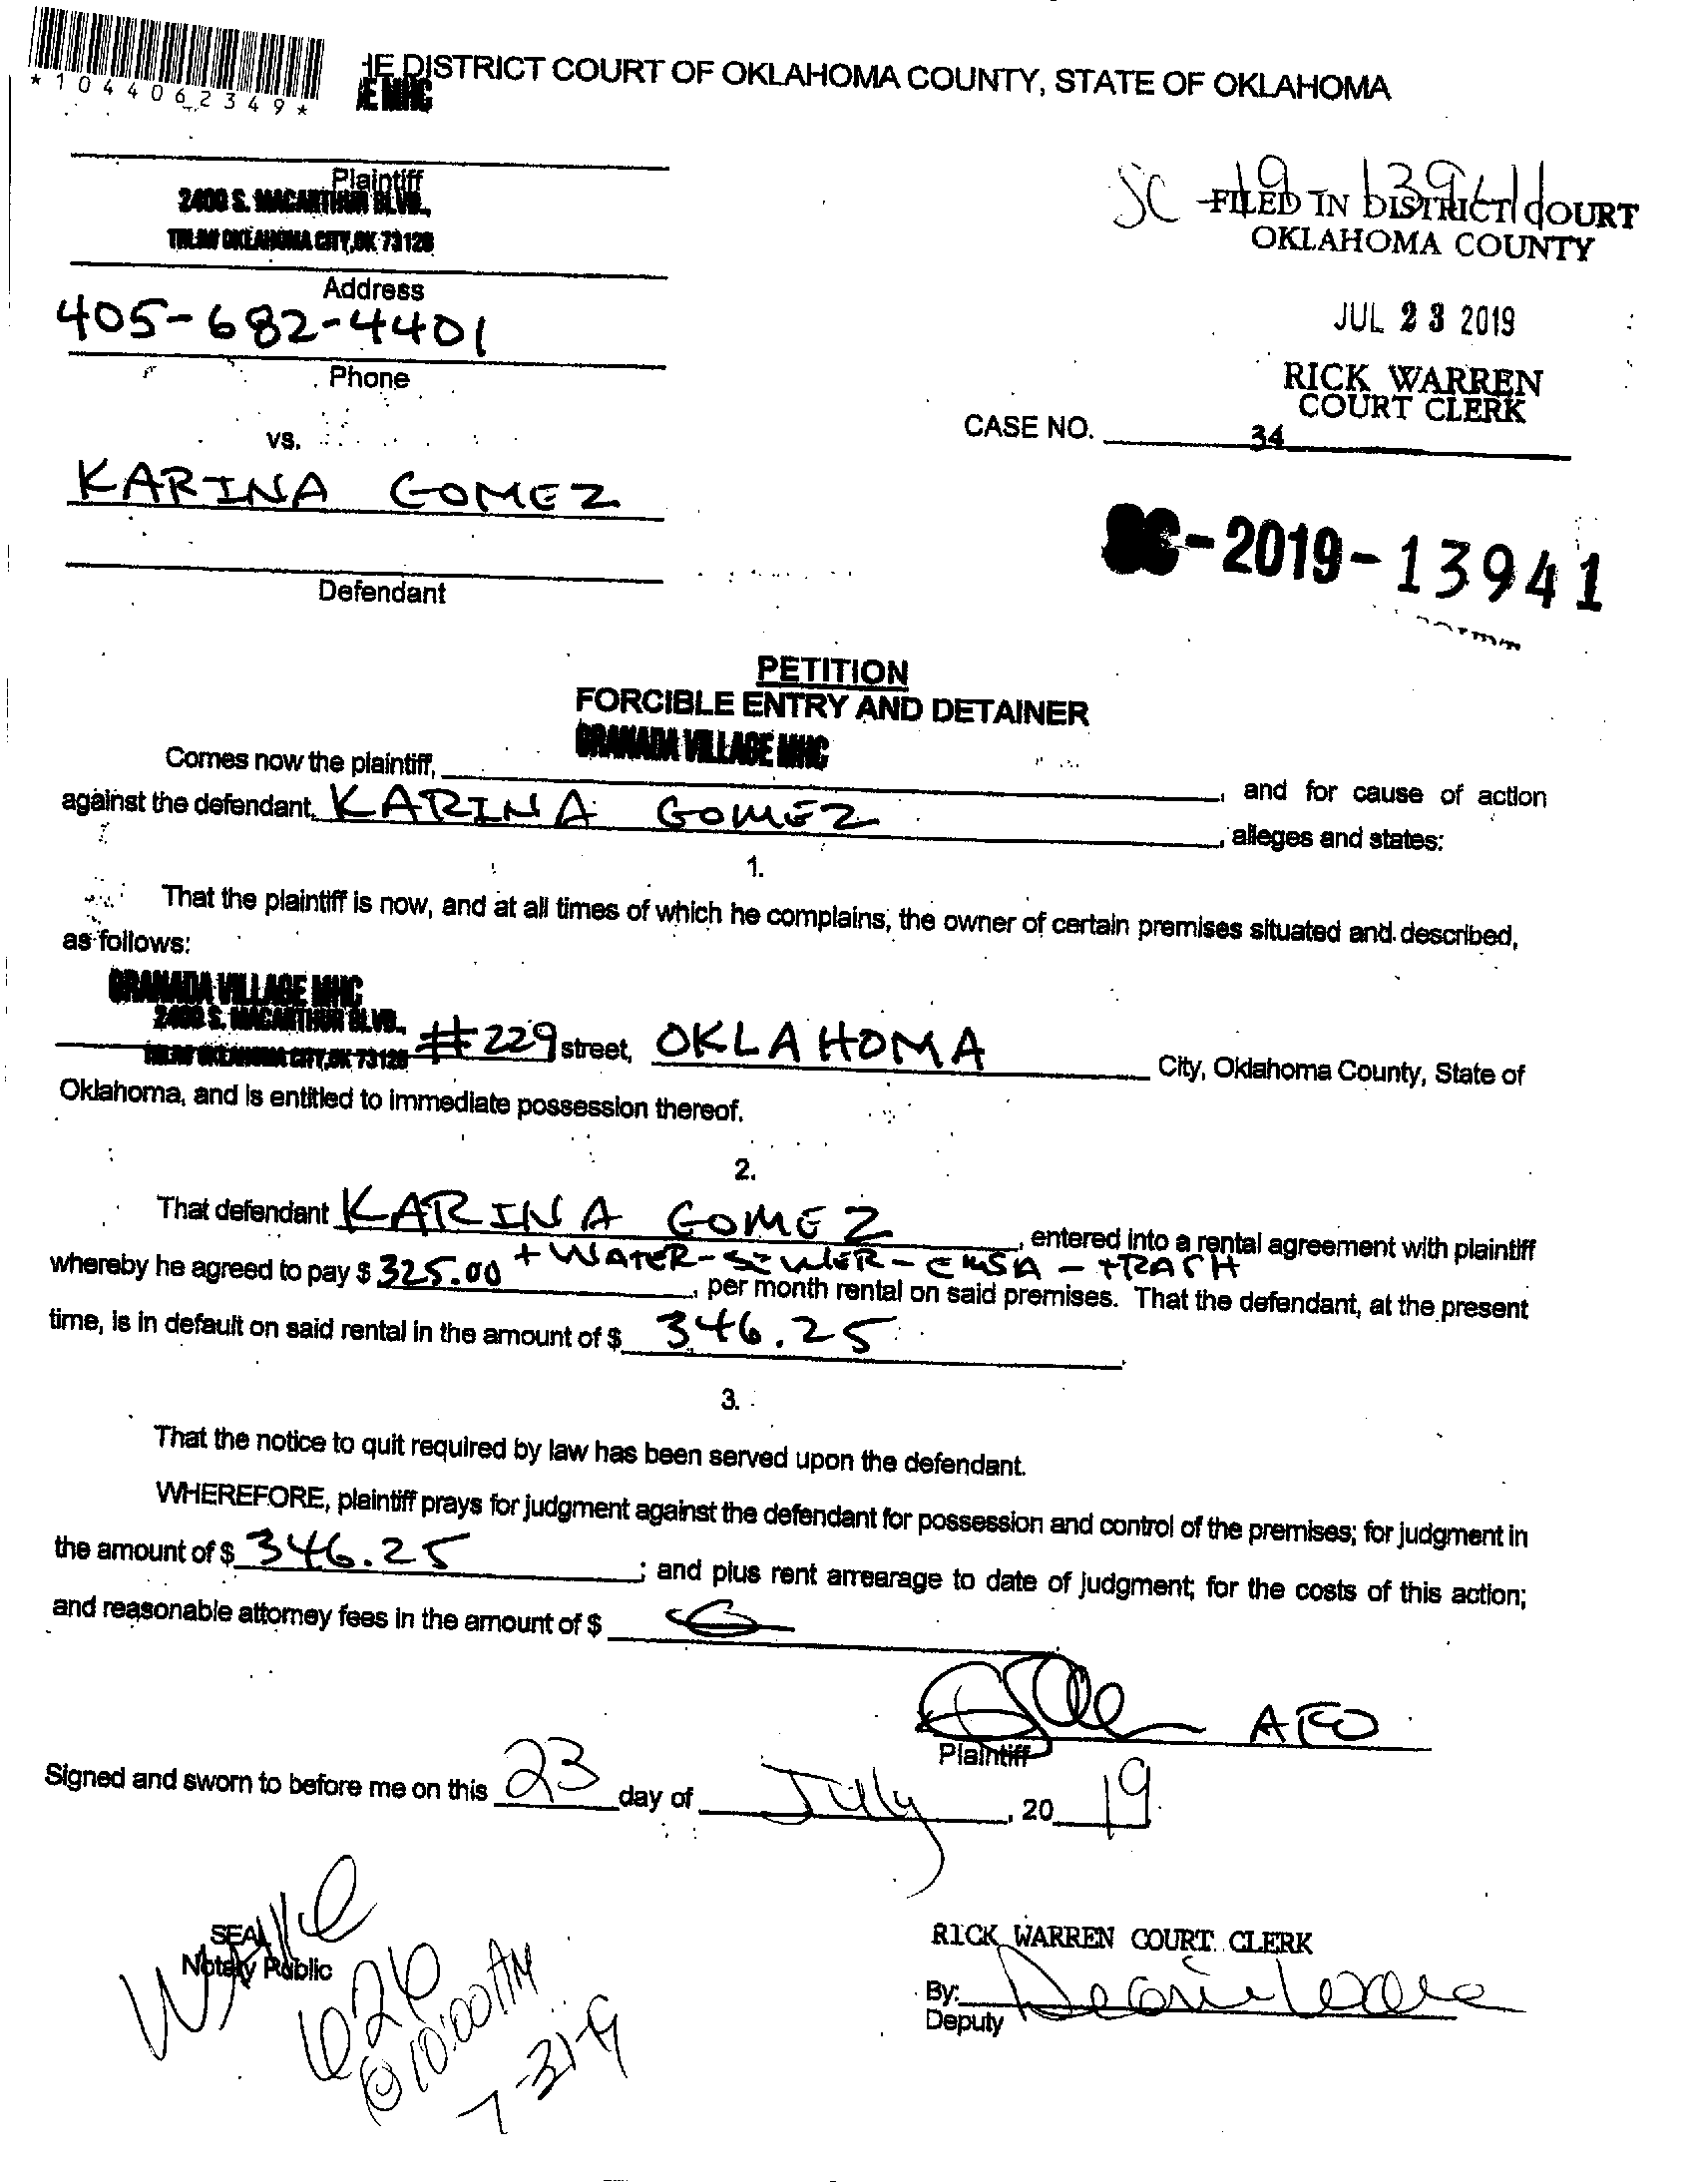 *1044062349*
HE DISTRICT COURT OF OKLAHOMA COUNTY, STATE OF OKLAHOMA
E MHC
Plaintiff
2400 S. MACARTHUR BLVD.,
OKLAHOMA CITY, OK 73128
Address
405-682-4401
Phone
vs.
KARINA GOMEZ
Defendant
SC-19-13941
FILED IN DISTRICT COURT
OKLAHOMA COUNTY
JUL 23 2019
RICK WARREN
COURT CLERK
CASE NO.
34
SC-2019-13941
PETITION
FORCIBLE ENTRY AND DETAINER
Comes now the plaintiff, GRANADA VILLAGE MHC, and for cause of action
against the defendant, KARINA GOMEZ, alleges and states:
1.
That the plaintiff is now, and at all times of which he complains, the owner of certain premises situated and described,
as follows:
GRANADA VILLAGE MHC
2400 S. MACARTHUR BLVD.,
OKLAHOMA CITY, OK 73128 #229 street, OKLAHOMA City, Oklahoma County, State of
Oklahoma, and is entitled to immediate possession thereof.
2.
That defendant KARINA GOMEZ, entered into a rental agreement with plaintiff
whereby he agreed to pay $ 325.00 + WATER-SEWER-EMSA-TRASH, per month rental on said premises. That the defendant, at the present
time, is in default on said rental in the amount of $ 346.25
3.
That the notice to quit required by law has been served upon the defendant.
WHEREFORE, plaintiff prays for judgment against the defendant for possession and control of the premises; for judgment in
the amount of $ 346.25; and plus rent arrearage to date of judgment; for the costs of this action;
and reasonable attorney fees in the amount of $
Plaintiff
Signed and sworn to before me on this 23 day of July, 20 19
SEAL
Notary Public
626
@ 10:00 AM
7-31-19
RICK WARREN COURT CLERK
By:
Deputy